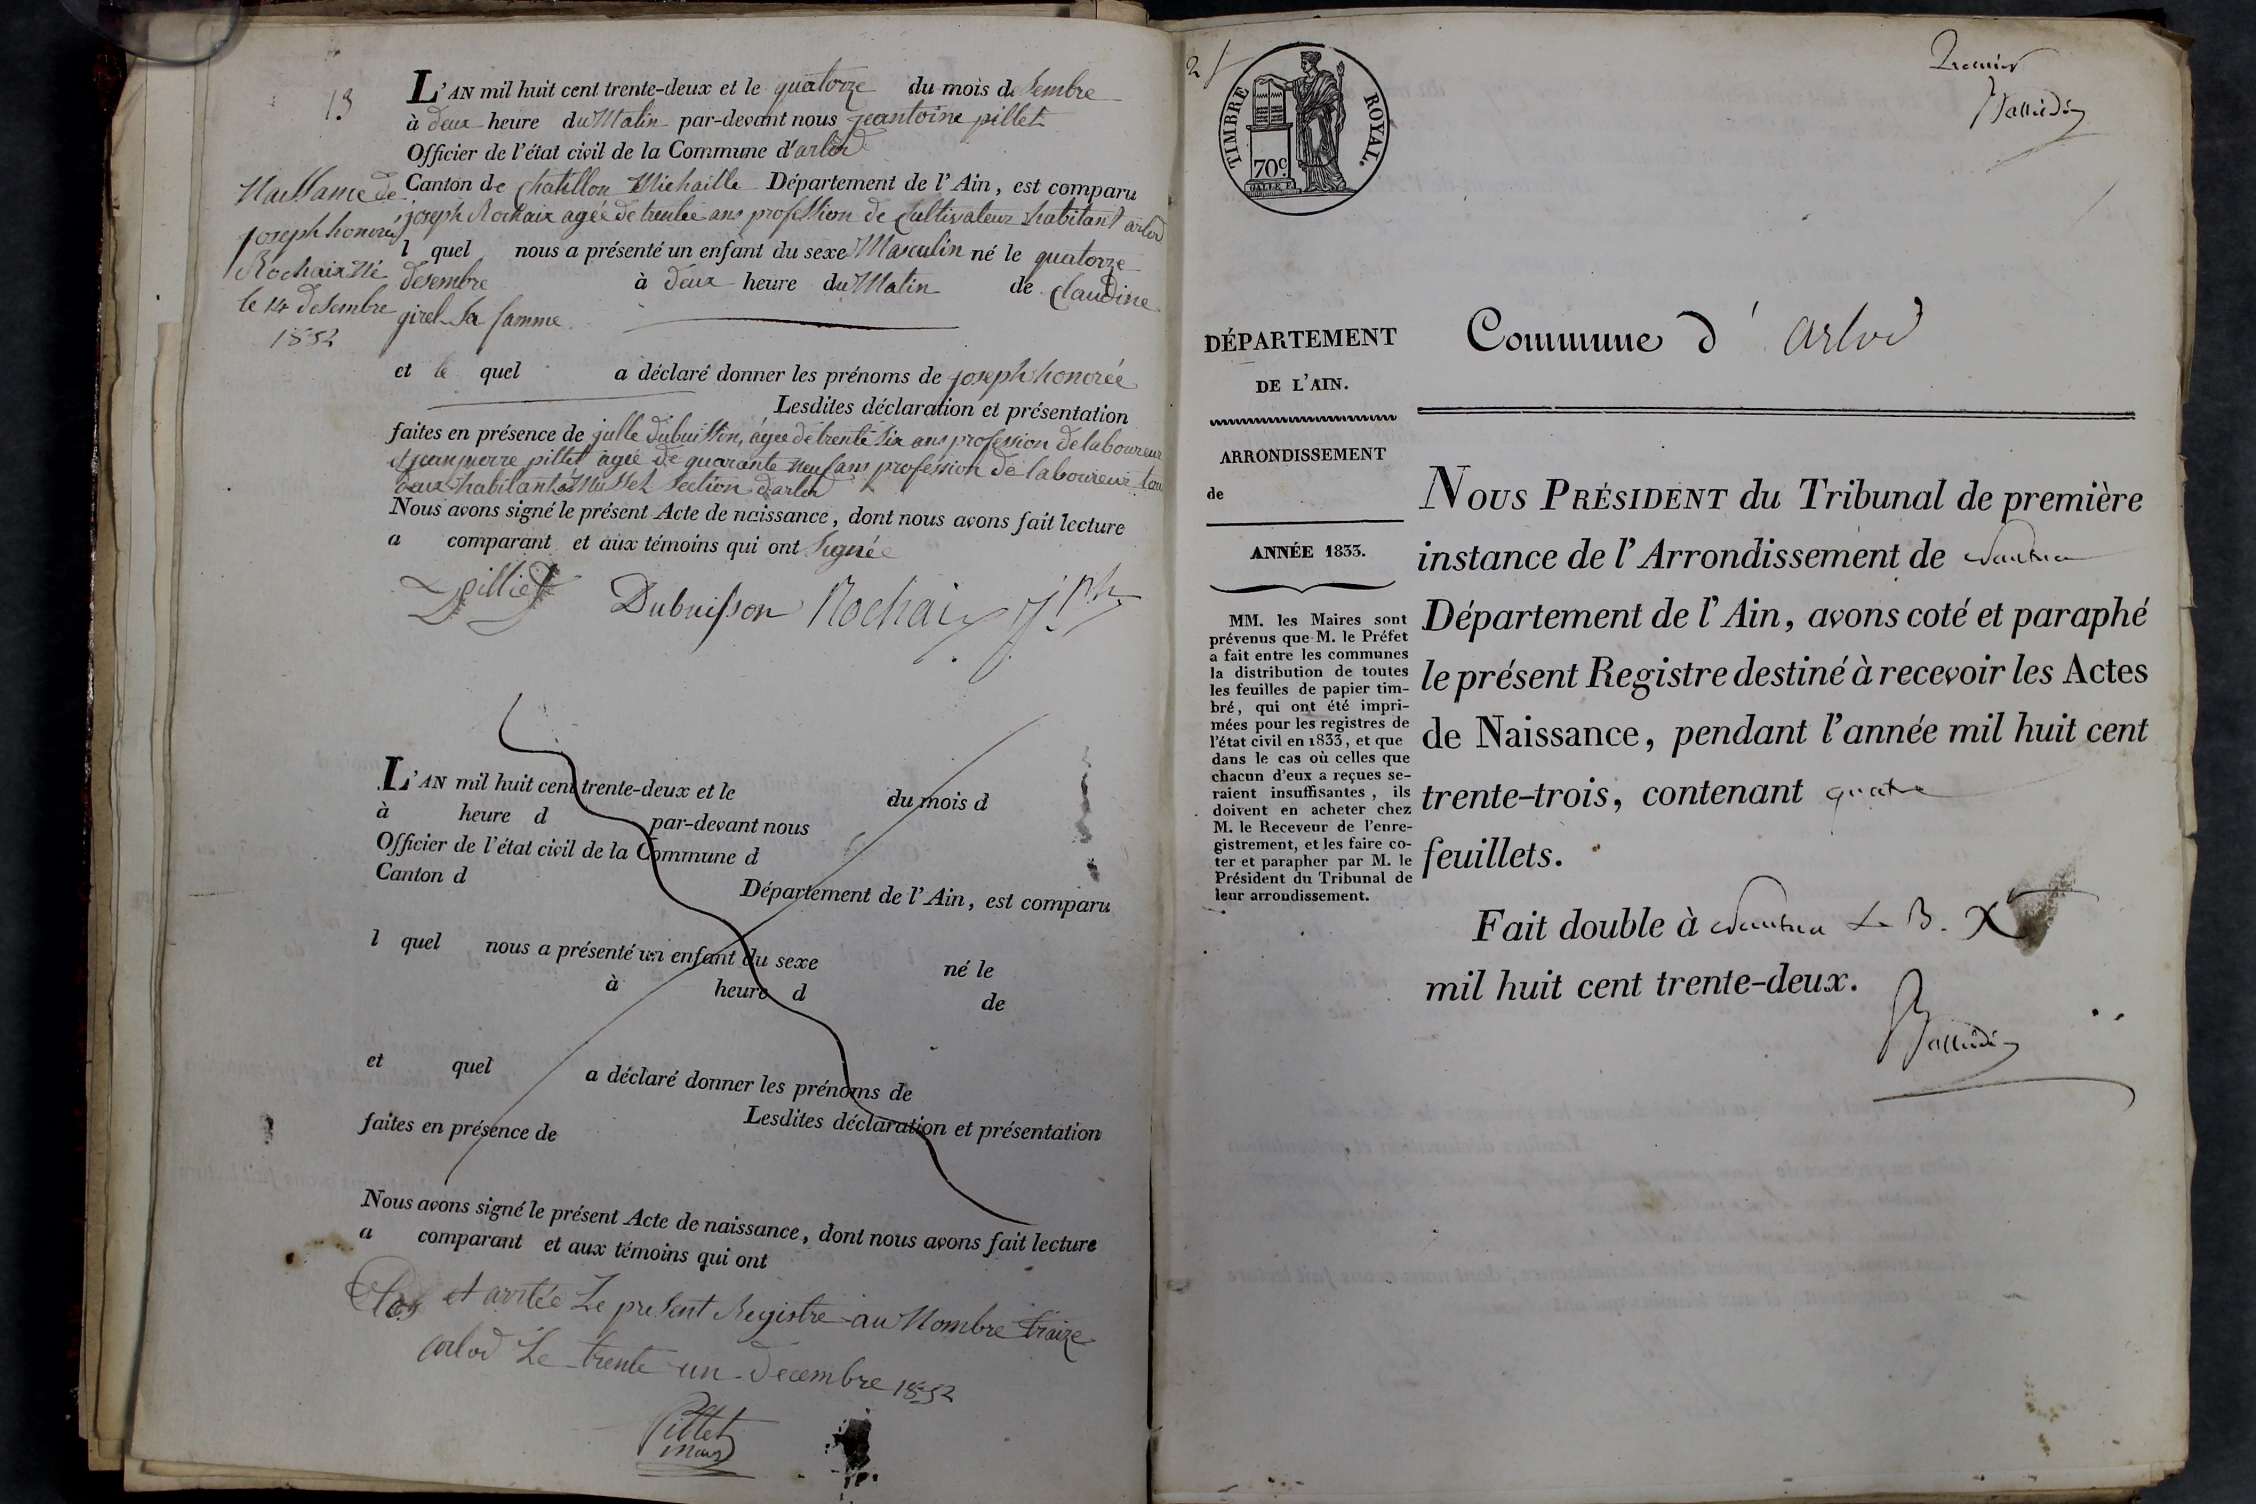 13
Naissance de
joseph honorée
Rochaix né
le 14 desembre
1832
L'AN mil huit cent trente-deux et le quatorze du mois de sembre
à deux heure du Matin par-devant nous jeantoine pillet
Officier de l'état civil de la Commune d'arlod
Canton de Chatillon Michaille Département de l'Ain, est comparu
joseph Rochaix agée de ans profession de Cultivateur habitant arlod
l quel nous a présenté un enfant du sexe Masculin né le quatorze
desembre à deux heure du Matin de Claudine
girel Sa famme
et le quel a déclaré donner les prénoms de joseph honorée
Lesdites déclaration et présentation
faites en présence de julle dubuisson, agée de trente six ans profession de laboureur
et jeanpierre pillet agée de quarante neuf ans profession de laboureur tous
deux habitant à Musset Section d'arlod
Nous avons signé le présent Acte de naissance, dont nous avons fait lecture
a comparant et aux témoins qui ont Signée
Pillet Dubuisson Rochaix jph
L'AN mil huit cent trente-deux et le du mois d
à heure d par-devant nous
Officier de l'état civil de la Commune d
Canton d Département de l'Ain, est comparu
l quel nous a présenté un enfant du sexe né le
à heure d de
et quel a déclaré donner les prénoms de
Lesdites déclaration et présentation
faites en présence de
Nous avons signé le présent Acte de naissance, dont nous avons fait lecture
a comparant et aux témoins qui ont
Clos et arrêtée Le present Registre au Nombre traize
arlod Le trente un decembre 1832
Pillet
maire
TIMBRE ROYAL.
70c
Premier
DÉPARTEMENT
DE L'AIN.
ARRONDISSEMENT
de
ANNÉE 1833.
MM. les Maires sont
prévenus que M. le Préfet
a fait entre les communes
la distribution de toutes
les feuilles de papier tim-
bré, qui ont été impri-
mées pour les registres de
l'état civil en 1833, et que
dans le cas où celles que
chacun d'eux a reçues se-
raient insuffisantes, ils
doivent en acheter chez
M. le Receveur de l'enre-
gistrement, et les faire co-
ter et parapher par M. le
Président du Tribunal de
leur arrondissement.
Commune d' arlod
NOUS PRÉSIDENT du Tribunal de première
instance de l'Arrondissement de Nantua
Département de l'Ain, avons coté et paraphé
le présent Registre destiné à recevoir les Actes
de Naissance, pendant l'année mil huit cent
trente-trois, contenant quatre
feuillets.
Fait double à Nantua Le 3. X
mil huit cent trente-deux.